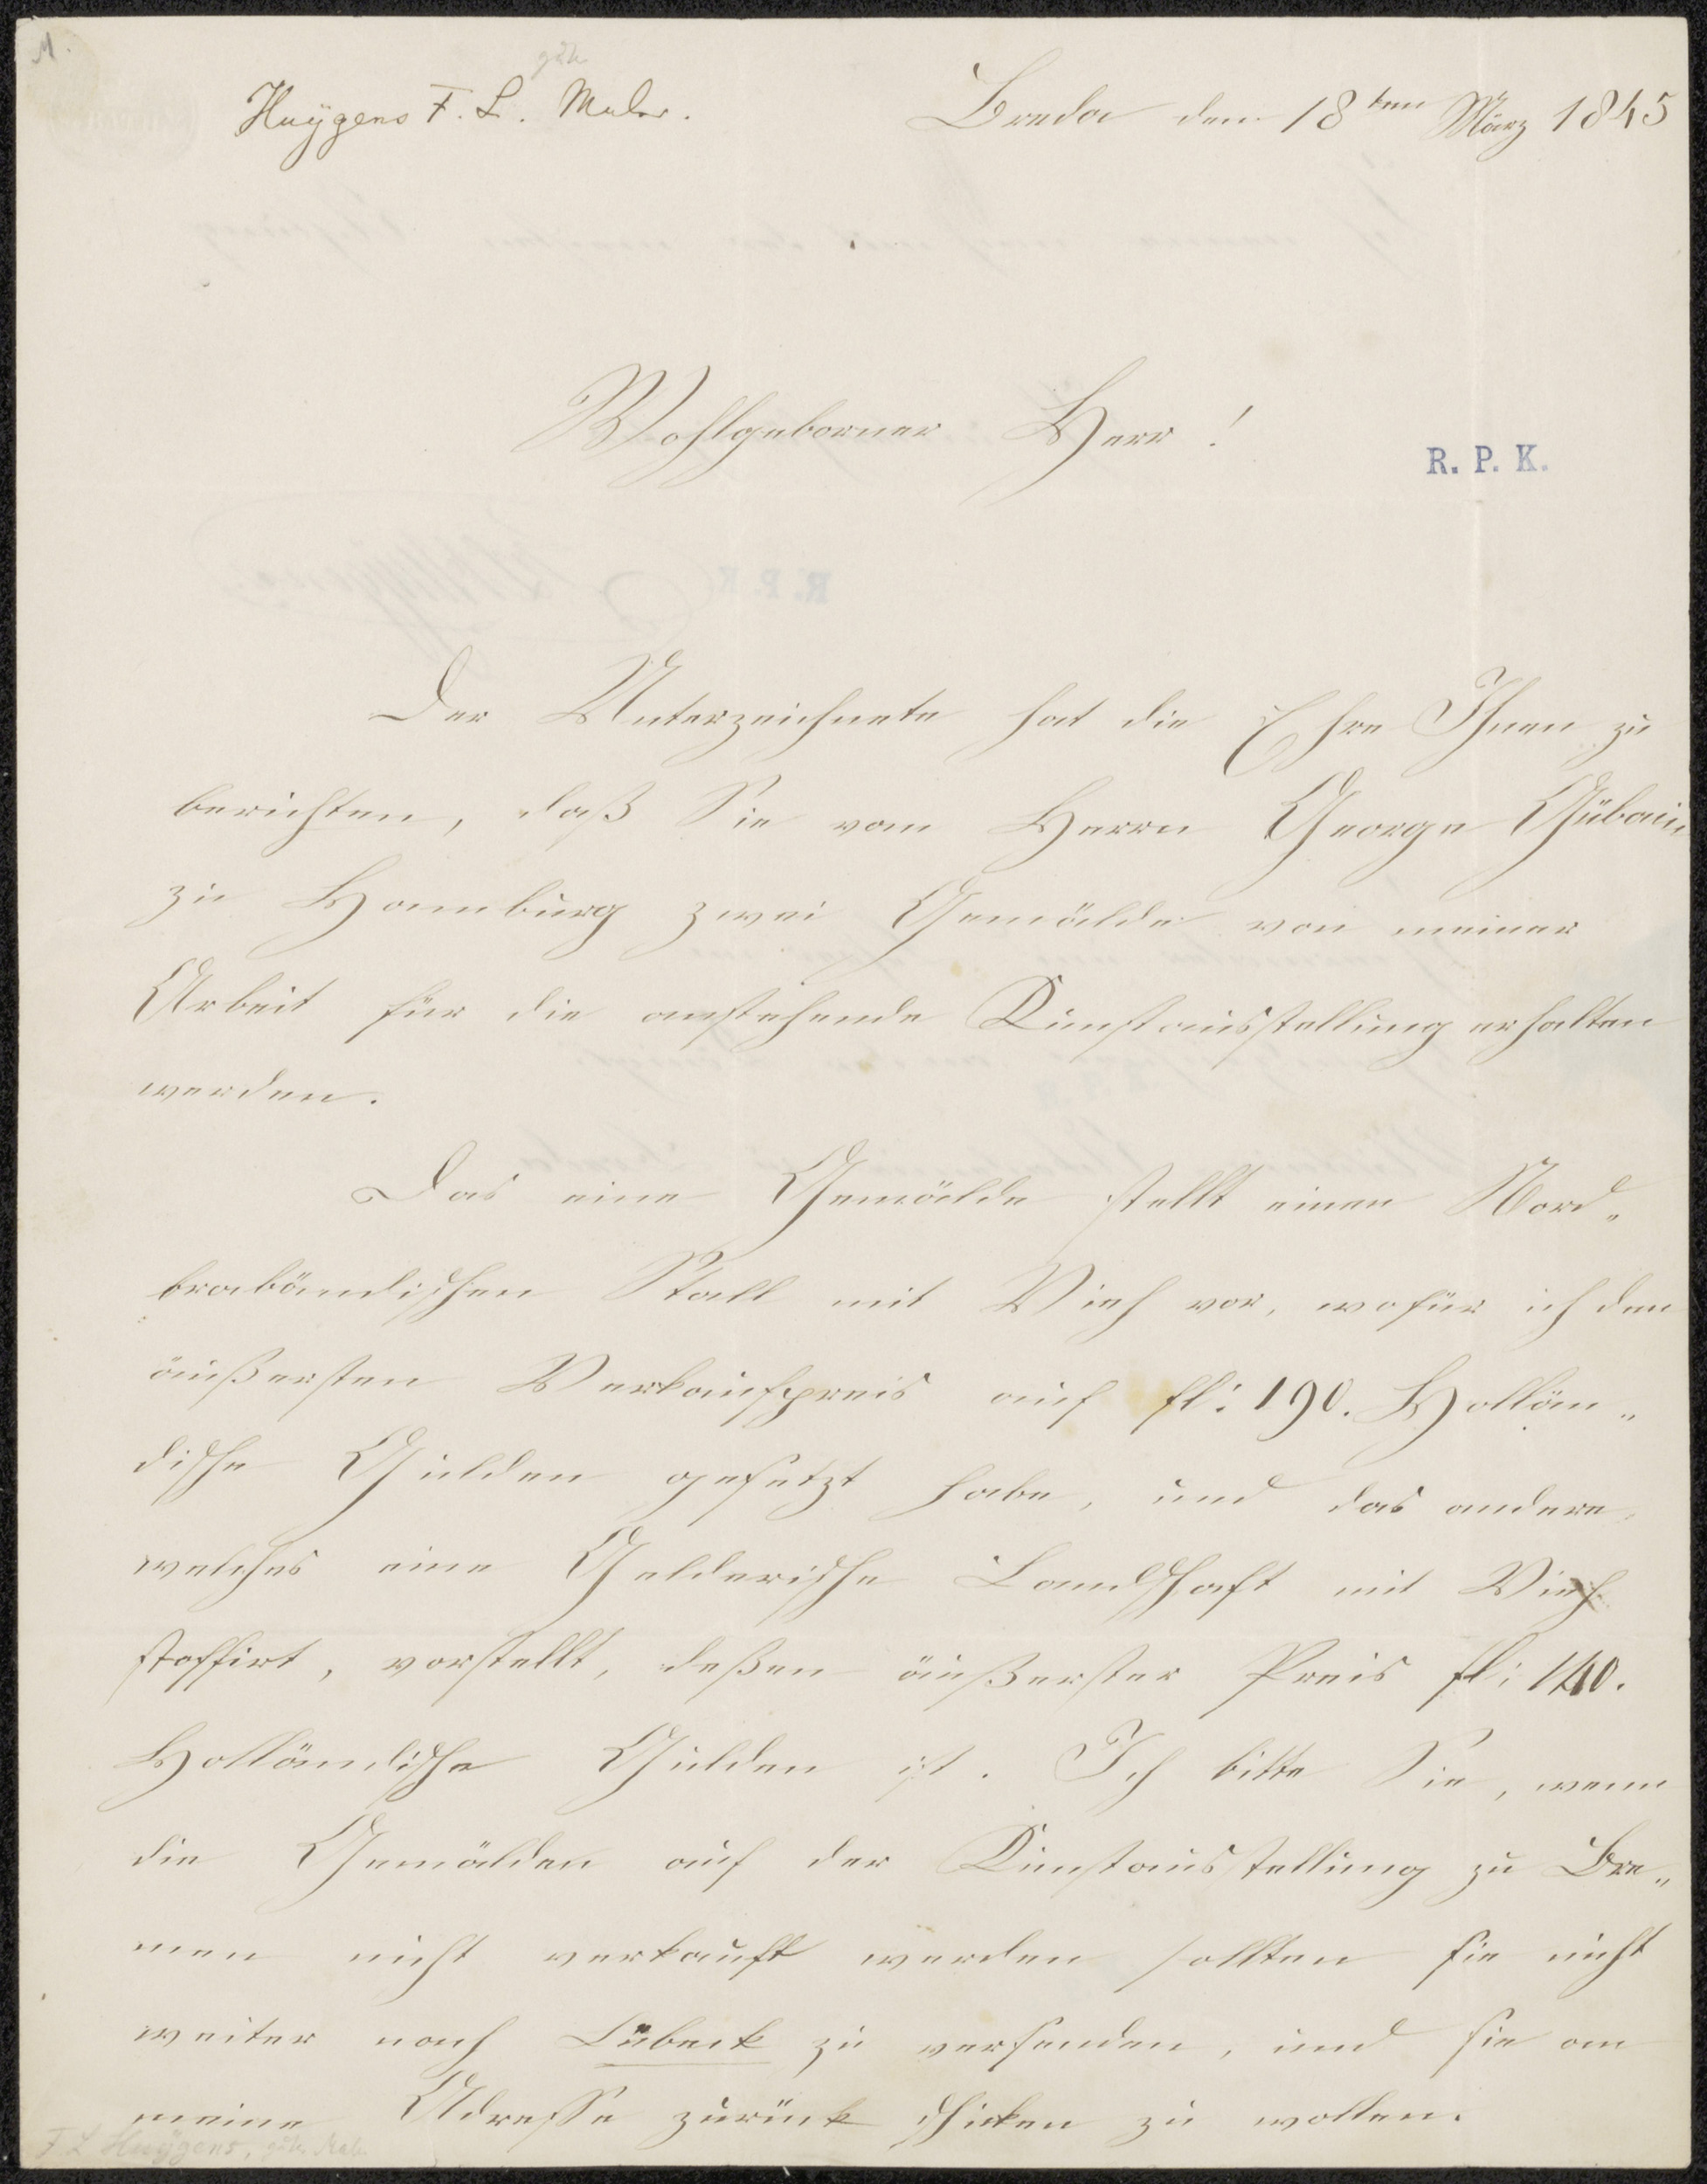 M.
Huÿgens F. L. Maler.
Breda den 18ten März 1845
Wohlgeborner Herr!
R. P. K.
Der Unterzeichnete hat die Ehre Ihnen zu
berichten, daß Sie vom Herrn George
zu Hamburg zwei Gemälde von meiner
Arbeit für die anstehende Kunstausstellung erhalten
werden.
Das eine Gemälde stellt einen Nord„
brabändischen Stall mit Vieh vor, wofür ich den
äußersten Verkaufpreis auf fl: 190. Hollän„
dische Gulden gesetzt habe, und das andere,
welches eine Gelderische Landschaft mit Vieh
staffirt, vorstellt, deßen äußerster Preis fl: 140.
Holländische Gulden ist. Ich bitte Sie, wenn
die Gemälden auf der Kunstausstellung zu Bre„
men nicht verkauft werden sollten sie nicht
weiter nach Lübeck zu versenden, und sie an
meine Adresse zurück schicken zu wollen.
F. L Huÿgens,